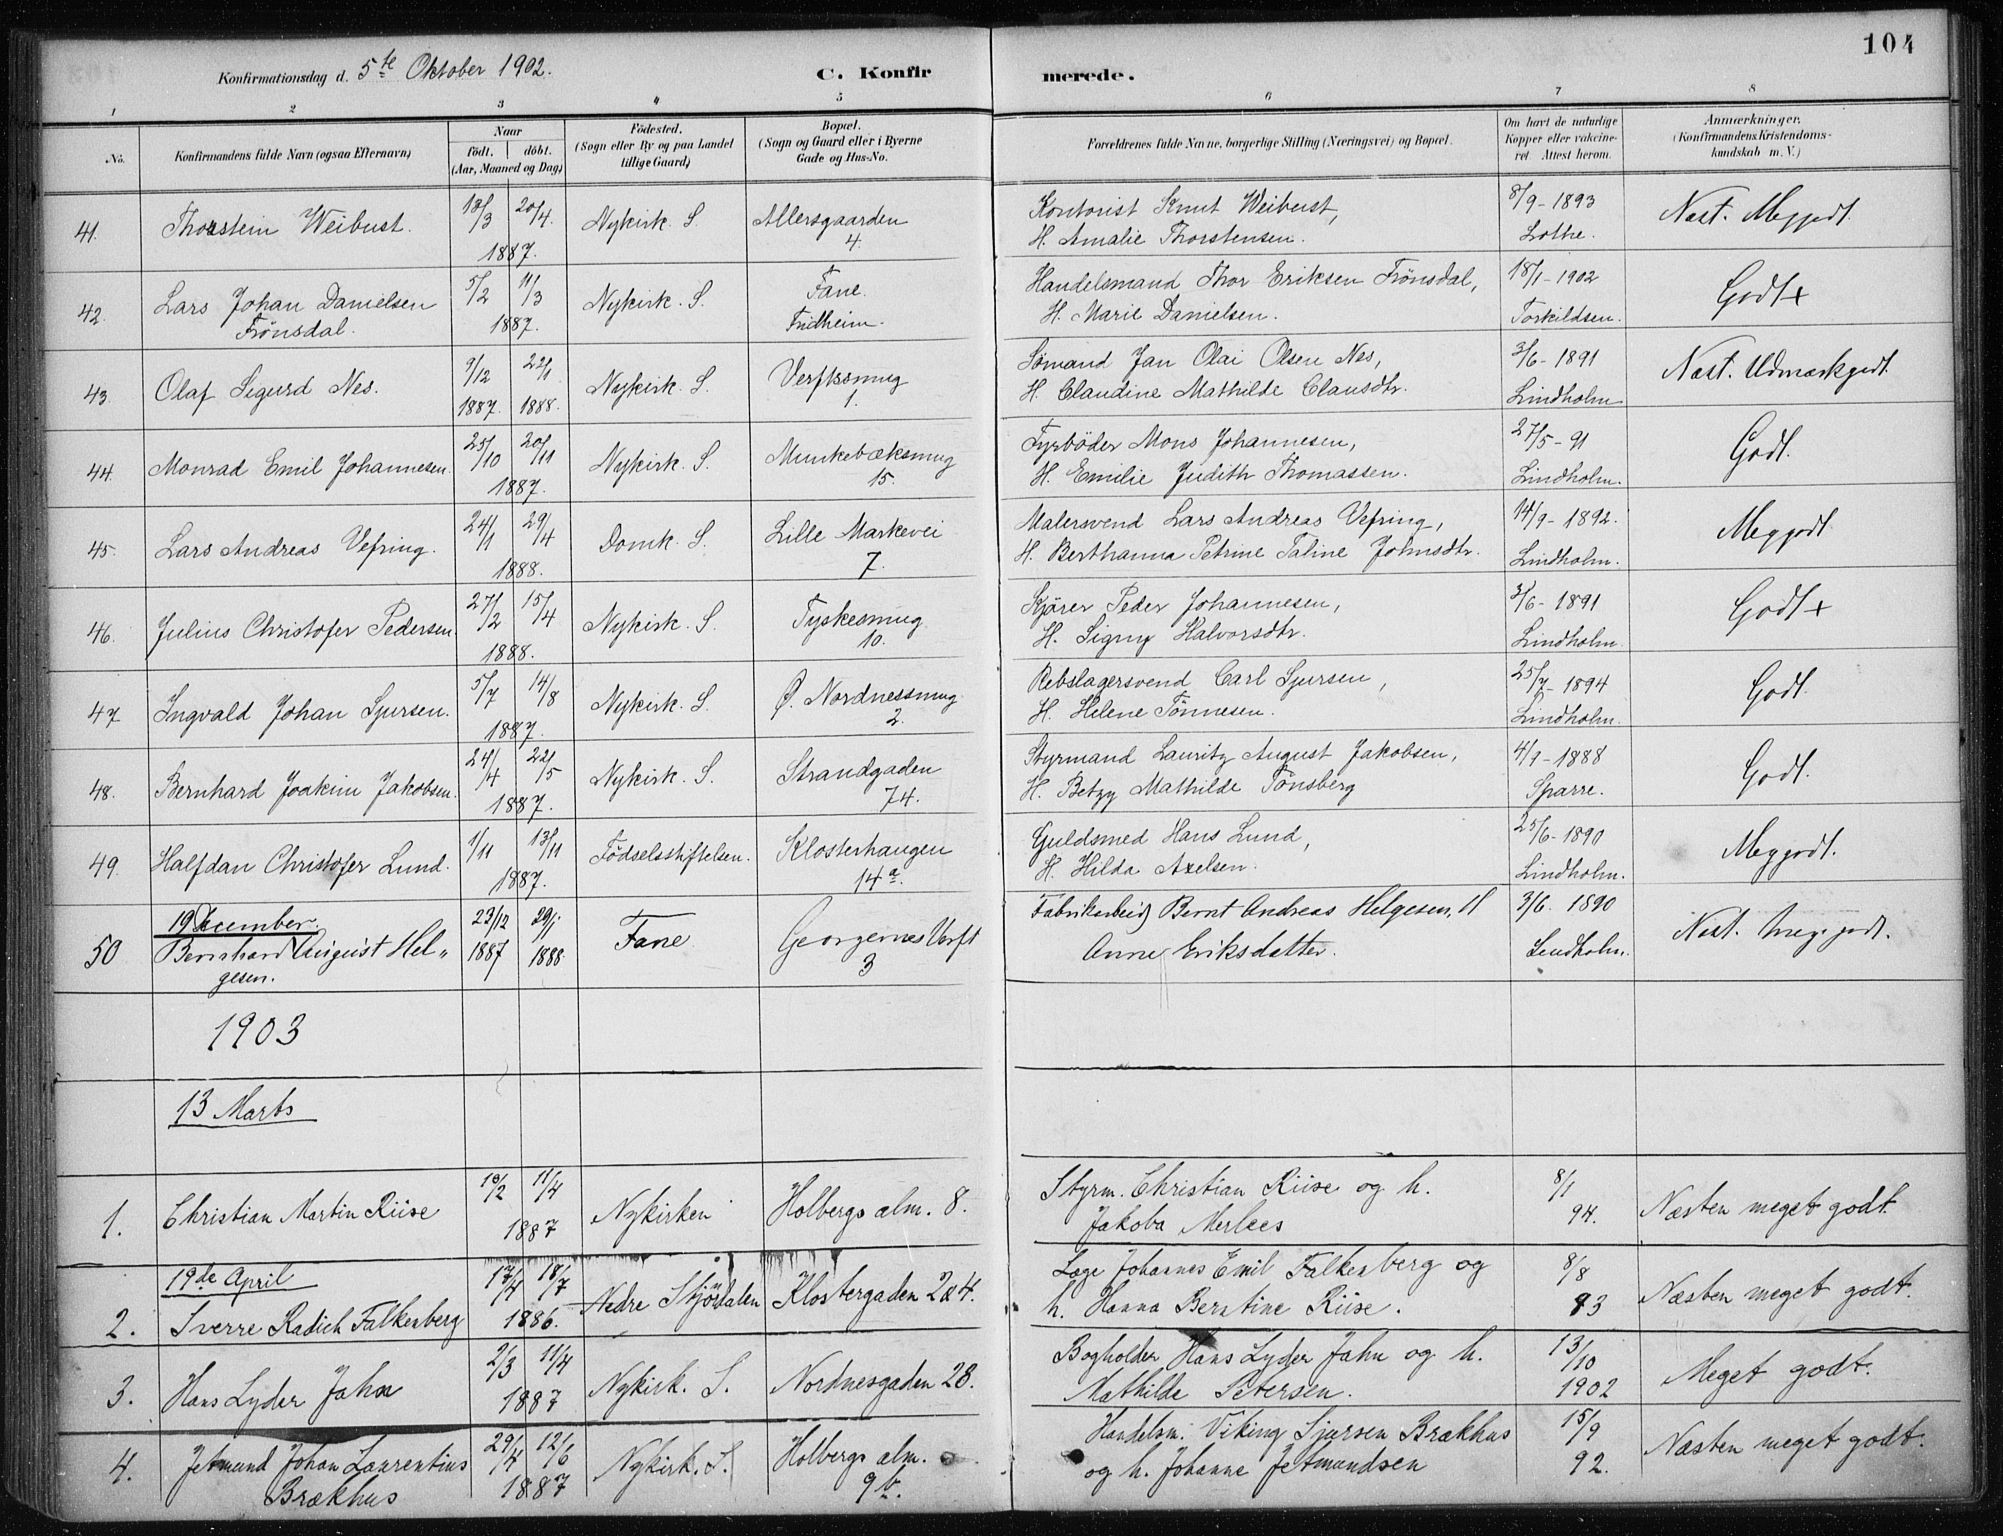 104
Konfirmationsdag d. 5te Oktober 1902. C. Konfirmerede.
1 2 3 4 5 6 7 8
No. Konfirmandens fulde Navn (ogsaa Efternavn) Naar födt. döbt. (Aar, Maaned og Dag) Födested. (Sogn eller By og paa Landet tillige Gaard) Bopæl. (Sogn og Gaard eller i Byerne Gade og Hus-No. Forældrenes fulde Navne, borgerlige Stilling (Næringsvei) og Bopæl. Om havt de naturlige Kopper eller vakcineret Attest herom. Anmærkninger. (Konfirmandens Kristendomskundskab m. V.)
41. Thorstein Weibust. 18/3 20/4 1887. Nykirk. S. Allersgaarden 4. Kontorist Knut Weibust, H. Amalie Thorstensen. 8/9-1893 Lothe. Næst. Meggodt.
42. Lars Johan Danielsen Frönsdal. 5/2 11/3 1887. Nykirk. S. Fane. Fridheim. Handelsmand Thor Eriksen Frönsdal, H. Marie Danielsen. 18/1-1902 Torkildsen. Godt+
43. Olaf Sigurd Nes. 9/12 1887. 22/1 1888. Nykirk. S. Verftssmug 1. Sömand Jan Olai Olsen Nes, H. Claudine Mathilde Clausdtr. 3/6-1891 Lindholm Næst. Udmærkgodt.
44. Monrad Emil Johannesen. 25/10 20/11 1887. Nykirk. S. Munkebæksmug 15. Fyrböder Mons Johannesen, H. Emilie Judith Thomassen. 27/5-91 Lindholm. Godt.
45. Lars Andreas Vefring. 24/1 29/4 1888. Domk. S. Lille Markevei 7. Malersvend Lars Andreas Vefring, H. Berthanna Petrine Taline Johnsdtr. 14/9-1892. Lindholm. Meggodt.
46. Julius Christofer Pedersen. 27/2 15/4 1888. Nykirk. S. Tyskesmug 10. Kjörer Peder Johannesen, H. Signy Halvorsdtr. 3/6-1891 Lindholm. Godt+
47. Ingvald Johan Sjursen. 5/7 14/8 1887. Nykirk. S. Ø. Nordnessmug 2. Rebslagersvend Carl Sjursen, H. Helene Tönnesen. 25/7-1894 Lindholm. Godt.
48. Bernhard Joakim Jakobsen. 24/4 22/5 1887. Nykirk. S. Strandgaden 74. Styrmand Lauritz August Jakobsen, H. Betzy Mathilde Tönsberg 4/9-1888 Sparre. Godt.
49. Halfdan Christofer Lund. 1/11 13/11 1887. Födselsstiftelsen. Klosterhaugen 14a. Guldsmed Hans Lund, H. Hilda Axelsen. 25/6-1890 Lindholm. Meggodt.
19 December.
50 Bernhard August Helgesen. 23/12 1887 29/1 1888 Fane Georgernes Verft 3 Fabrikarbeid. Bernt Andreas Helgesen, H Anne Eriksdatter. 3/6. 1890 Lindholm. Næst. meg. godt.
1903
13 Marts
1. Christian Martin Riise 19/2 11/4 1887 Nykirken Holbergs alm. 8. Styrm. Christian Riise og h. Jakoba Merlees 8/1 94. Næsten meget godt.
19de April
2. Sverre Radich Falkenberg 17/4 18/7 1886. Nedre Stjördalen Klostergaden 2a4. Læge Johannes Emil Falkenberg og h. Hanna Berntine Riise. 8/8 93 Næsten meget godt.
3. Hans Lyder Jahn 2/3 11/4 1887 Nykirk. S. Nordnesgaden 28. Bogholder Hans Lyder Jahn og h. Mathilde Petersen. 13/10 1902 Meget godt.
4. Jetmund Johan Laurentius Brækhus 29/4 12/6 1887 Nykirk. S. Holbergs alm. 9b. Handelsm. Viking Sjursen Brækhus og h. Johanne Jetmundsen 15/9 92. Næsten meget godt.